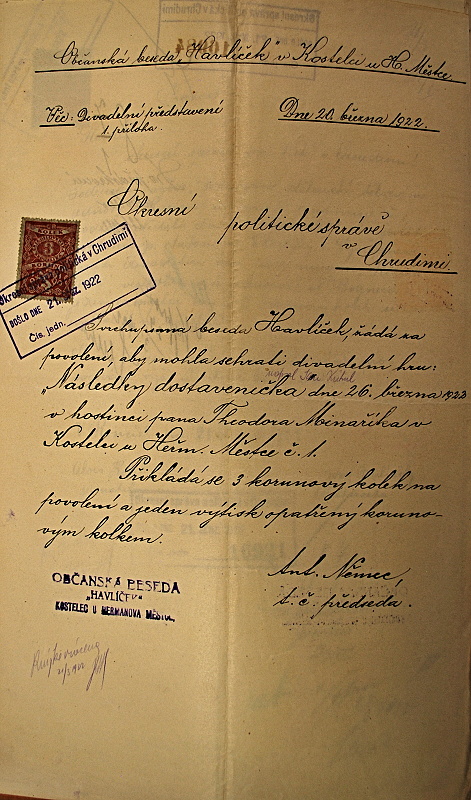 Občanská beseda „Havlíček" v Kostelci u H. Městce.
Věc: Divadelní představení
1. příloha.
Dne 20. března 1922.
Okresní politické správě
v
Chrudimi.
KOLEK
3
v Chrudimi
DOŠLO DNE 21. 1922
Čís. jedn.
Svrchupsaná beseda Havlíček, žádá za
povolení, aby mohla sehráti divadelní hru:
„Následky dostaveníčka dne 26. března 1922
v hostinci pana Theodora Minaříka v
Kostelci u Heřm. Městce č. 1.
Přikládá se 3 korunový kolek na
povolení a jeden výtisk opatřený koruno-
vým kolkem.
Ant. Němec,
t. č. předseda.
OBČANSKÁ BESEDA
„HAVLÍČEK"
KOSTELEC U HEŘMANOVA MĚSTCE.